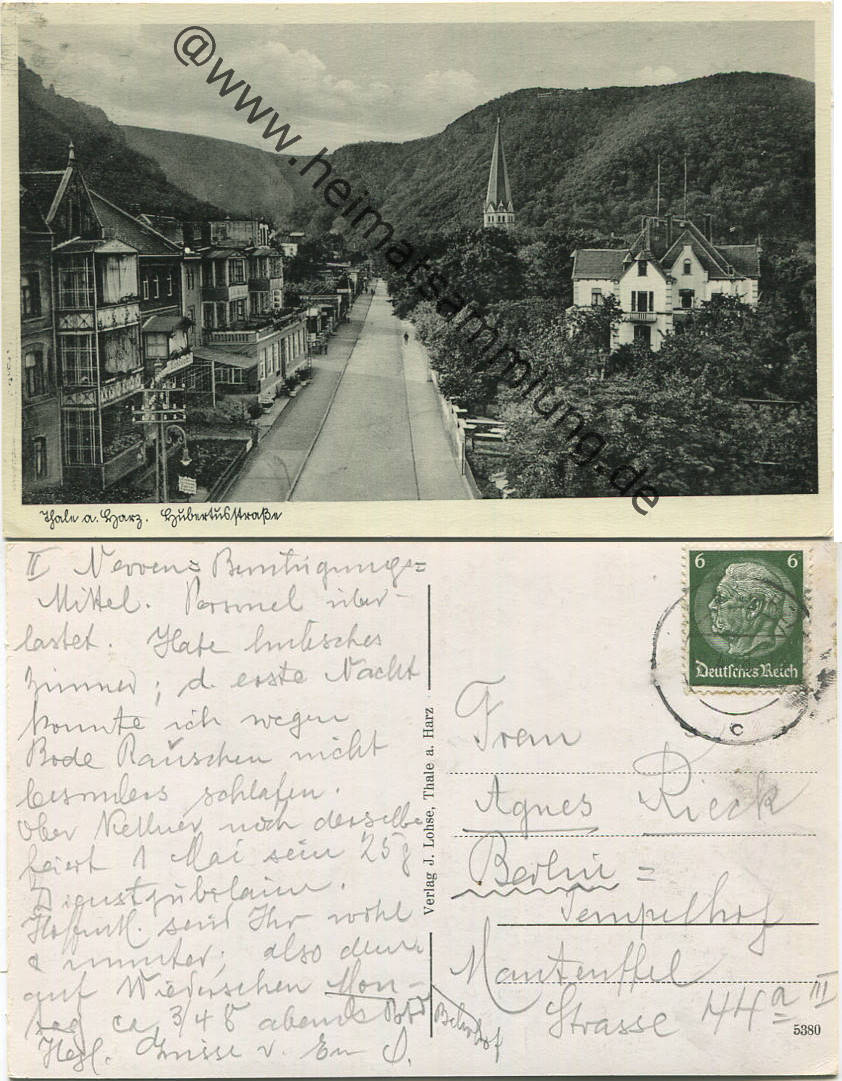 @www.heimatsammlung.de
Thale a. Harz. Hubertusstraße
II Nerven= Beruhigungs=
Mittel. Personal über-
lastet. Habe hübsches
Zimmer; d. erste Nacht
konnte ich wegen
Bode Rauschen nicht
besonders schlafen.
Ober Kellner noch derselbe
feiert 1 Mai sein 25j
Dienstjubiläum.
Hoffentl. seid Ihr wohl
& munter; also denn
auf Wiedersehen Mon-
tag ca 3/4 8 abends Bahnhof
Herzl. Grüsse v.
Verlag J. Lohse, Thale a. Harz
6 6
Deutsches Reich
c
Frau
Agnes Rieck
Berlin =
Tempelhof
Manteuffel
Strasse 44a III
5380